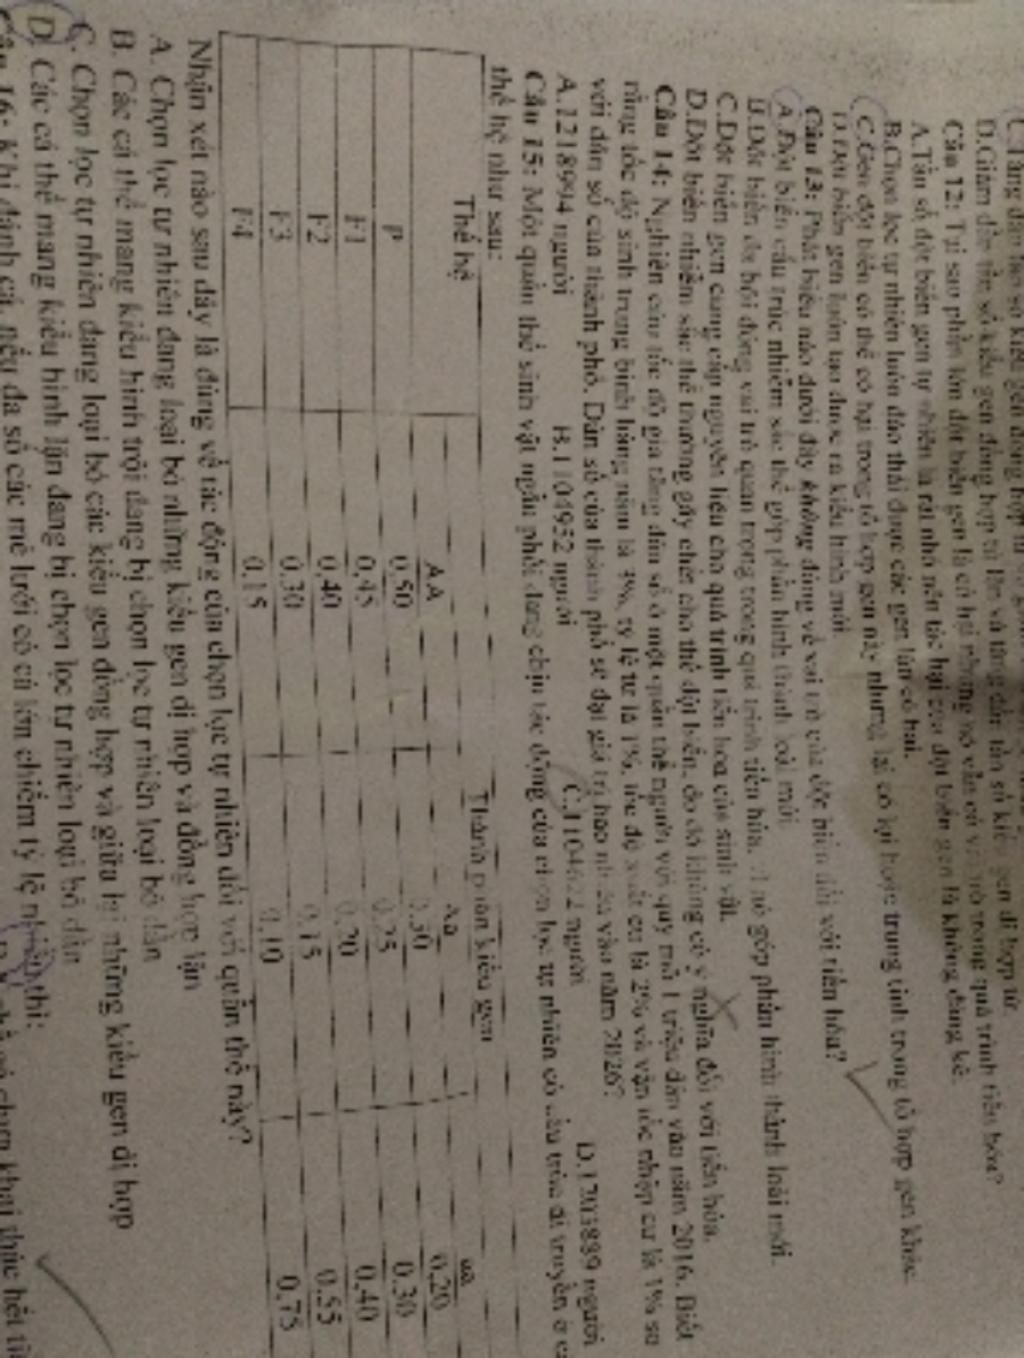 C.Tăng dần
D.Giảm dần tần số kiểu gen đồng hợp tử lặn và tăng dần tần số kiểu gen dị hợp tử.
Câu 12: Tại sao phần lớn đột biến gen là có hại nhưng nó vẫn có vai trò trong quá trình tiến hóa?
A.Tần số đột biến gen tự nhiên là rất nhỏ nên tác hại của đột biến gen là không đáng kể.
B.Chọn lọc tự nhiên luôn đào thải được các gen lặn có hại.
C.Gen đột biến có thể có hại trong tổ hợp gen này nhưng lại có lợi hoặc trung tính trong tổ hợp gen khác.
D.Đột biến gen luôn tạo được ra kiểu hình mới.
Câu 13: Phát biểu nào dưới đây không đúng về vai trò của đột biến đối với tiến hóa?
A.Đột biến cấu trúc nhiễm sắc thể góp phần hình thành loài mới.
B.Đột biến đa bội đóng vai trò quan trọng trong quá trình tiến hóa, vì nó góp phần hình thành loài mới.
C.Đột biến gen cung cấp nguyên liệu cho quá trình tiến hóa của sinh vật.
D.Đột biến nhiễm sắc thể thường gây chết cho thể đột biến, do đó không có ý nghĩa đối với tiến hóa.
Câu 14: Nghiên cứu tốc độ gia tăng dân số ở một quần thể người với quy mô 1 triệu dân vào năm 2016. Biết
rằng tốc độ sinh trung bình hàng năm là 3%, tỷ lệ tử là 1%, tốc độ xuất cư là 2% và vận tốc nhập cư là 1% so
với dân số của thành phố. Dân số của thành phố sẽ đạt giá trị bao nhiêu vào năm 2026?
A.1218994 người B.1104952 người C.1104622 người D.1203889 người
Câu 15: Một quần thể sinh vật ngẫu phối đang chịu tác động của chọn lọc tự nhiên có cấu trúc di truyền ở
thể hệ như sau:
Thế hệ Thành phần kiểu gen
AA Aa aa
P 0,50 0,30 0,20
F1 0,45 0,25 0,30
F2 0,40 0,20 0,40
F3 0,30 0,15 0,55
F4 0,15 0,10 0,75
Nhận xét nào sau đây là đúng về tác động của chọn lọc tự nhiên đối với quần thể này?
A. Chọn lọc tự nhiên đang loại bỏ những kiểu gen dị hợp và đồng hợp lặn
B. Các cá thể mang kiểu hình trội đang bị chọn lọc tự nhiên loại bỏ dần
C. Chọn lọc tự nhiên đang loại bỏ các kiểu gen đồng hợp và giữ lại những kiểu gen dị hợp
D. Các cá thể mang kiểu hình lặn đang bị chọn lọc tự nhiên loại bỏ dần
Câu 16: Khi đánh cá, nếu đa số các mẻ lưới có cá lớn chiếm tỷ lệ nhiều thì:
khai thác hết